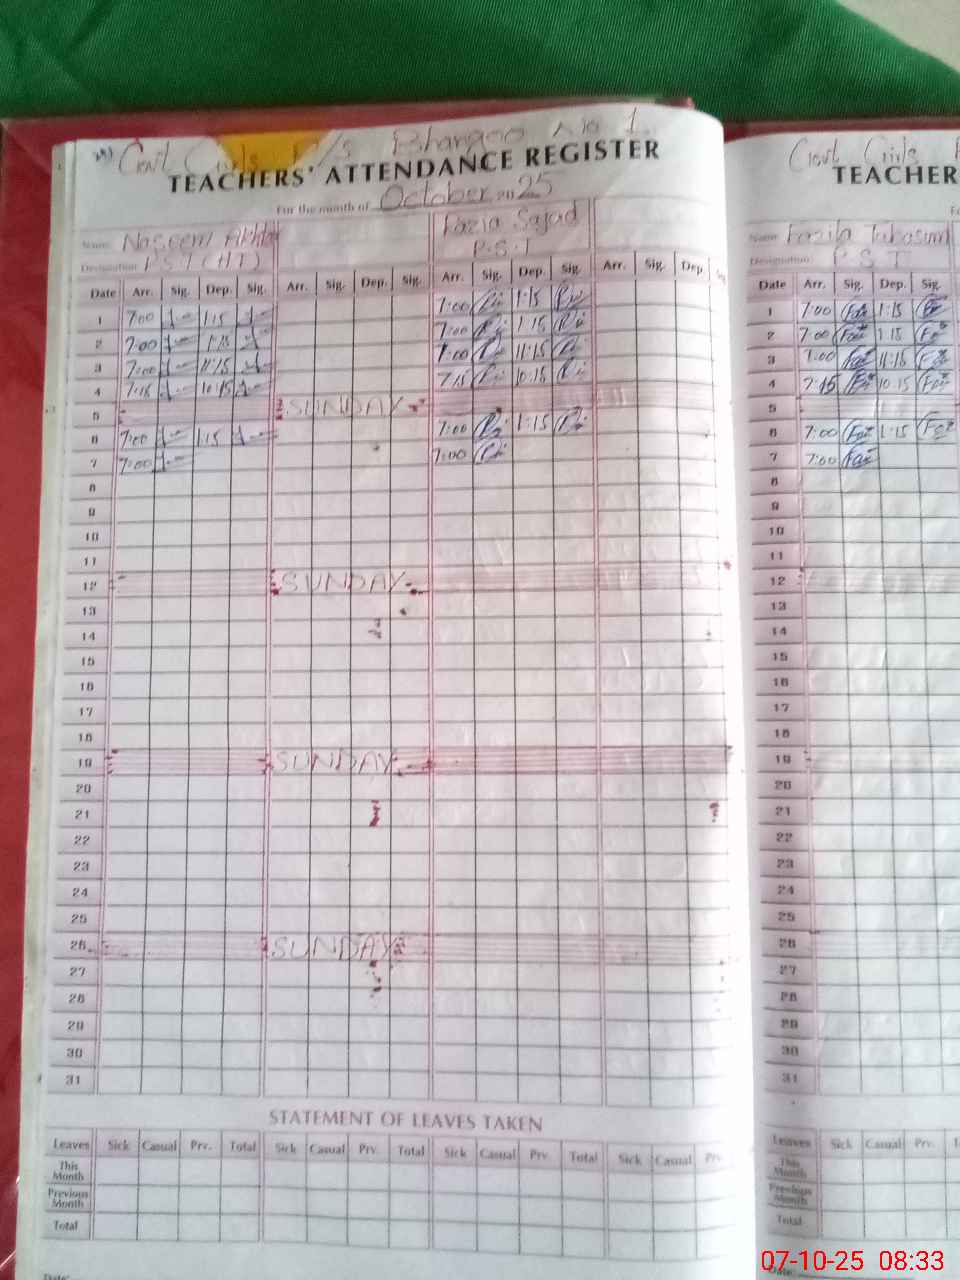 Govt Girls P/s Bhangoo No 1.
TEACHERS' ATTENDANCE REGISTER
For the month of October 2025
Name Naseem Akhtar Fazia Sajad
Designation P.S.T (H.T) P.S.T
Date Arr. Sig. Dep. Sig. Arr. Sig. Dep. Sig. Arr. Sig. Dep. Sig. Arr. Sig. Dep.
1 7:00 1:15 7:00 1:15
2 7:00 1:15 7:00 1:15
3 7:00 11:15 7:00 11:15
4 7:15 10:15 7:15 10:15
5 SUNDAY
6 7:00 1:15 7:00 1:15
7 7:00 7:00
8
9
10
11
12 SUNDAY
13
14
15
16
17
18
19 SUNDAY
20
21
22
23
24
25
26 SUNDAY
27
28
29
30
31
STATEMENT OF LEAVES TAKEN
Leaves Sick Casual Prv. Total Sick Casual Prv. Total Sick Casual Prv. Total Sick Casual Prv.
This Month
Previous Month
Total
Date:
Govt Girls
TEACHER
Name Fazila Tabasum
Designation P.S.T
Date Arr. Sig. Dep. Sig.
1 7:00 1:15
2 7:00 1:15
3 7:00 11:15
4 7:15 10:15
5
6 7:00 1:15
7 7:00
8
9
10
11
12
13
14
15
16
17
18
19
20
21
22
23
24
25
26
27
28
29
30
31
Leaves Sick Casual Prv.
This Month
Previous Month
Total
Date:
07-10-25 08:33